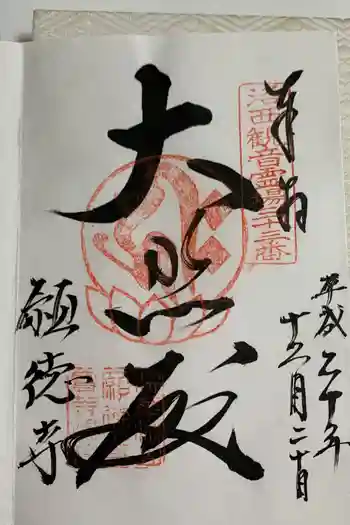 奉拝
平成二十年
月二十日
洛西観音霊場三十三番
大悲殿
願徳寺